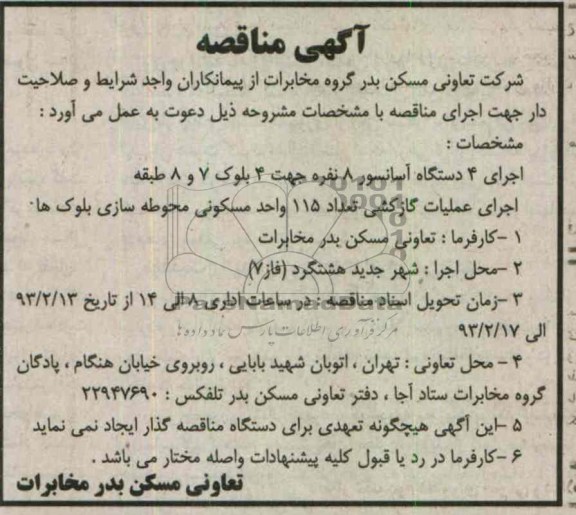 آگهی مناقصه
شرکت تعاونی مسکن بدر گروه مخابرات از پیمانکاران واجد شرایط و صلاحیت
دار جهت اجرای مناقصه با مشخصات مشروحه ذیل دعوت به عمل می آورد :
مشخصات :
اجرای ۴ دستگاه آسانسور ۸ نفره جهت ۴ بلوک ۷ و ۸ طبقه
اجرای عملیات گازکشی تعداد ۱۱۵ واحد مسکونی محوطه سازی بلوک ها
۱ -کارفرما : تعاونی مسکن بدر مخابرات
۲ -محل اجرا : شهر جدید هشتگرد (فاز۷)
۳ -زمان تحویل اسناد مناقصه : در ساعات اداری ۸ الی ۱۴ از تاریخ ۹۳/۲/۱۳
مرکز فرآوری اطلاعات پارس نماد داده ها
الی ۹۳/۲/۱۷
۴ - محل تعاونی : تهران ، اتوبان شهید بابایی ، روبروی خیابان هنگام ، پادگان
گروه مخابرات ستاد آجا ، دفتر تعاونی مسکن بدر تلفکس : ۲۲۹۴۷۶۹۰
۵ -این آگهی هیچگونه تعهدی برای دستگاه مناقصه گذار ایجاد نمی نماید
۶ -کارفرما در رد یا قبول کلیه پیشنهادات واصله مختار می باشد .
تعاونی مسکن بدر مخابرات